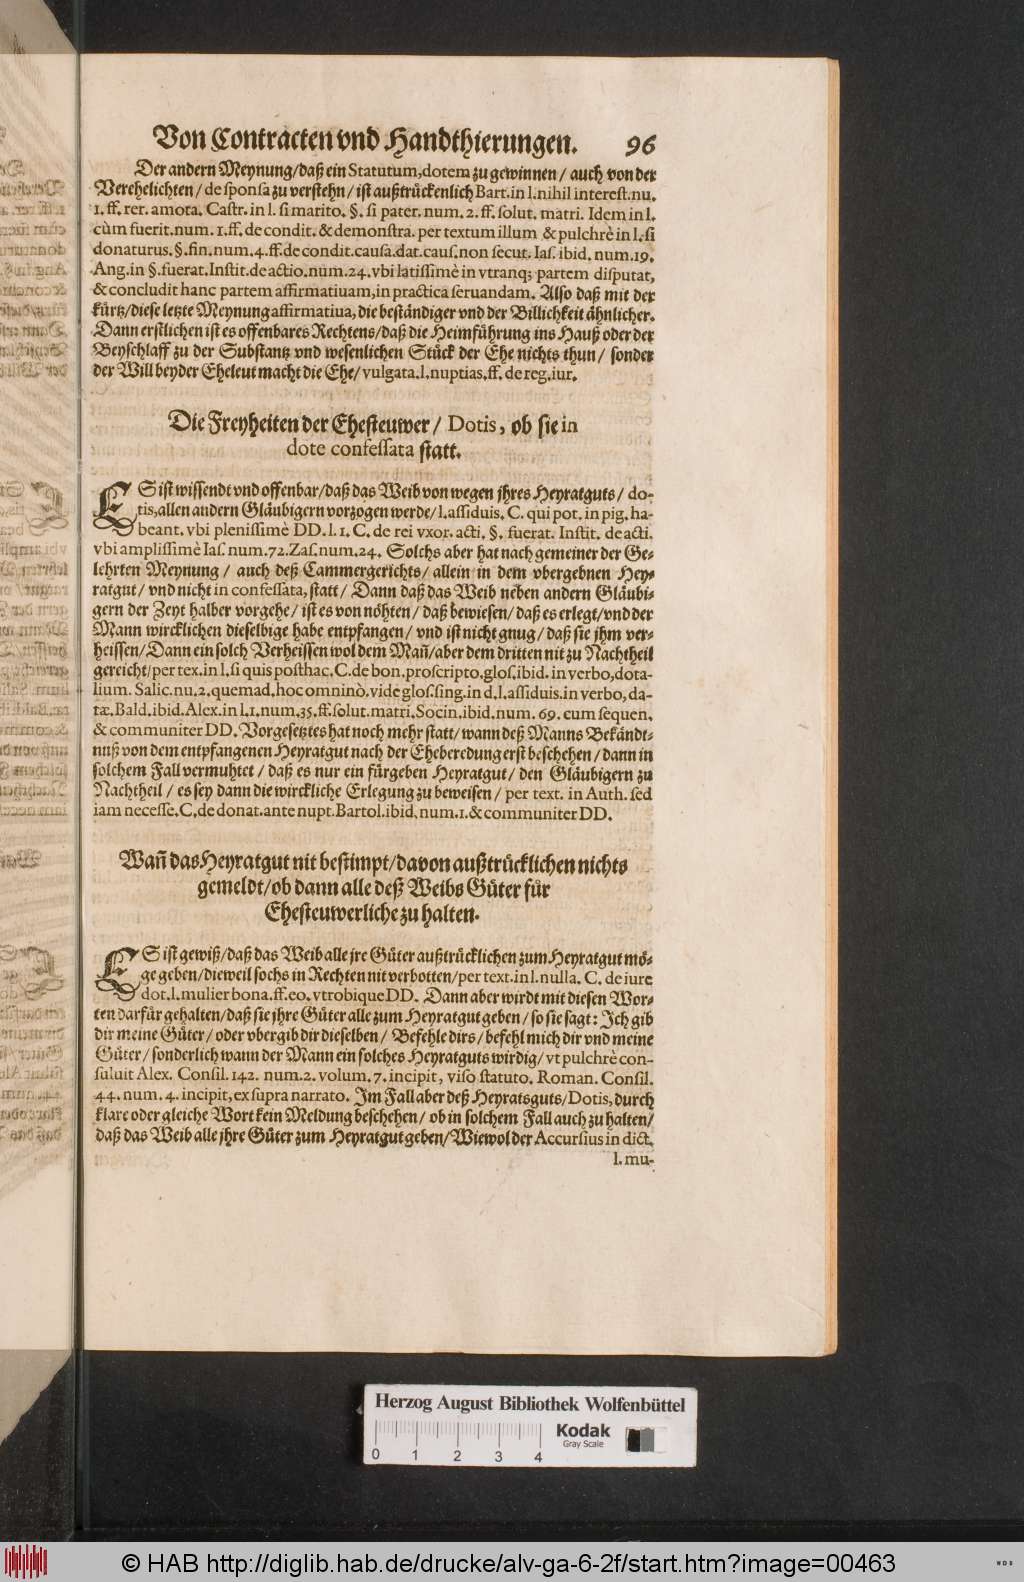 Von Contracten vnd Handthierungen. 96
Der andern Meynung/daß ein Statutum,dotem zu gewinnen/ auch von der
Verehelichten/ de sponsa zu verstehn/ ist außtrückenlich Bart.in l.nihil interest.nu.
1. ff. rer. amota. Castr. in l. si marito. §. si pater. num. 2. ff. solut. matri. Idem in l.
cùm fuerit.num. 1.ff. de condit. & demonstra. per textum illum & pulchrè in l. si
donaturus. §.fin. num. 4.ff.de condit.causa.dat.caus.non secut. Ias. ibid. num. 19.
Ang. in §.fuerat.Instit.de actio.num. 24. vbi latissimè in vtranq; partem disputat,
& concludit hanc partem affirmatiuam,in practica seruandam. Also daß mit der
kürtz/diese letzte Meynung affirmatiua, die beständiger vnd der Billichkeit ähnlicher.
Dann erstlichen ist es offenbares Rechtens/daß die Heimführung ins Hauß oder der
Beyschlaff zu der Substantz vnd wesenlichen Stück der Ehe nichts thun/ sonder
der Will beyder Eheleut macht die Ehe/ vulgata.l.nuptias.ff. de reg.iur.
Die Freyheiten der Ehesteuwer/ Dotis, ob sie in
dote confessata statt.
ES ist wissendt vnd offenbar/daß das Weib von wegen jhres Heyratguts/ do-
tis,allen andern Gläubigern vorzogen werde/ l.assiduis. C. qui pot. in pig. ha-
beant. vbi plenissimè DD. l. 1. C. de rei vxor. acti. §. fuerat. Instit. de acti.
vbi amplissimè Ias. num. 72. Zas. num. 24. Solchs aber hat nach gemeiner der Ge-
lehrten Meynung/ auch deß Cammergerichts/ allein in dem vbergebnen Hey-
ratgut/ vnd nicht in confessata, statt/ Dann daß das Weib neben andern Gläubi-
gern der Zeyt halber vorgehe/ ist es von nöhten/ daß bewiesen/ daß es erlegt/vnd der
Mann wircklichen dieselbige habe entpfangen/ vnd ist nicht gnug/ daß sie jhm ver-
heissen/ Dann ein solch Verheissen wol dem Mañ/aber dem dritten nit zu Nachtheil
gereicht/per tex.in l.si quis posthac.C.de bon.proscripto.glos.ibid. in verbo,dota-
lium. Salic.nu.2.quemad.hoc omninò.vide glos.sing.in d.l.assiduis.in verbo,da-
tæ. Bald.ibid. Alex. in l.1.num.35.ff.solut.matri.Socin.ibid.num. 69. cum sequen.
& communiter DD. Vorgesetztes hat noch mehr statt/wann deß Manns Bekändt-
nuß von dem entpfangenen Heyratgut nach der Eheberedung erst beschehen/ dann in
solchem Fall vermuhtet/ daß es nur ein fürgeben Heyratgut/ den Gläubigern zu
Nachtheil/ es sey dann die wirckliche Erlegung zu beweisen/ per text. in Auth. sed
iam necesse.C.de donat.ante nupt.Bartol.ibid.num.1.& communiter DD.
Wañ das Heyratgut nit bestimpt/davon außtrücklichen nichts
gemeldt/ob dann alle deß Weibs Güter für
Ehesteuwerliche zu halten.
ES ist gewiß/daß das Weib alle jre Güter außtrücklichen zum Heyratgut mö-
ge geben/dieweil sochs in Rechten nit verbotten/per text.in l.nulla. C. de iure
dot.l.mulier bona.ff.eo. vtrobique DD. Dann aber wirdt mit diesen Wor-
ten darfür gehalten/daß sie jhre Güter alle zum Heyratgut geben/ so sie sagt: Ich gib
dir meine Güter/ oder vbergib dir dieselben/ Befehle dirs/ befehl mich dir vnd meine
Güter/ sonderlich wann der Mann ein solches Heyratguts wirdig/ vt pulchrè con-
suluit Alex. Consil. 142. num. 2. volum. 7. incipit, viso statuto. Roman. Consil.
44. num. 4. incipit, ex supra narrato. Im Fall aber deß Heyratsguts/ Dotis, durch
klare oder gleiche Wort kein Meldung beschehen/ ob in solchem Fall auch zu halten/
daß das Weib alle jhre Güter zum Heyratgut geben/ Wiewol der Accursius in dict.
l. mu-
Herzog August Bibliothek Wolfenbüttel
Kodak
Gray Scale
0 1 2 3 4
© HAB http://diglib.hab.de/drucke/alv-ga-6-2f/start.htm?image=00463